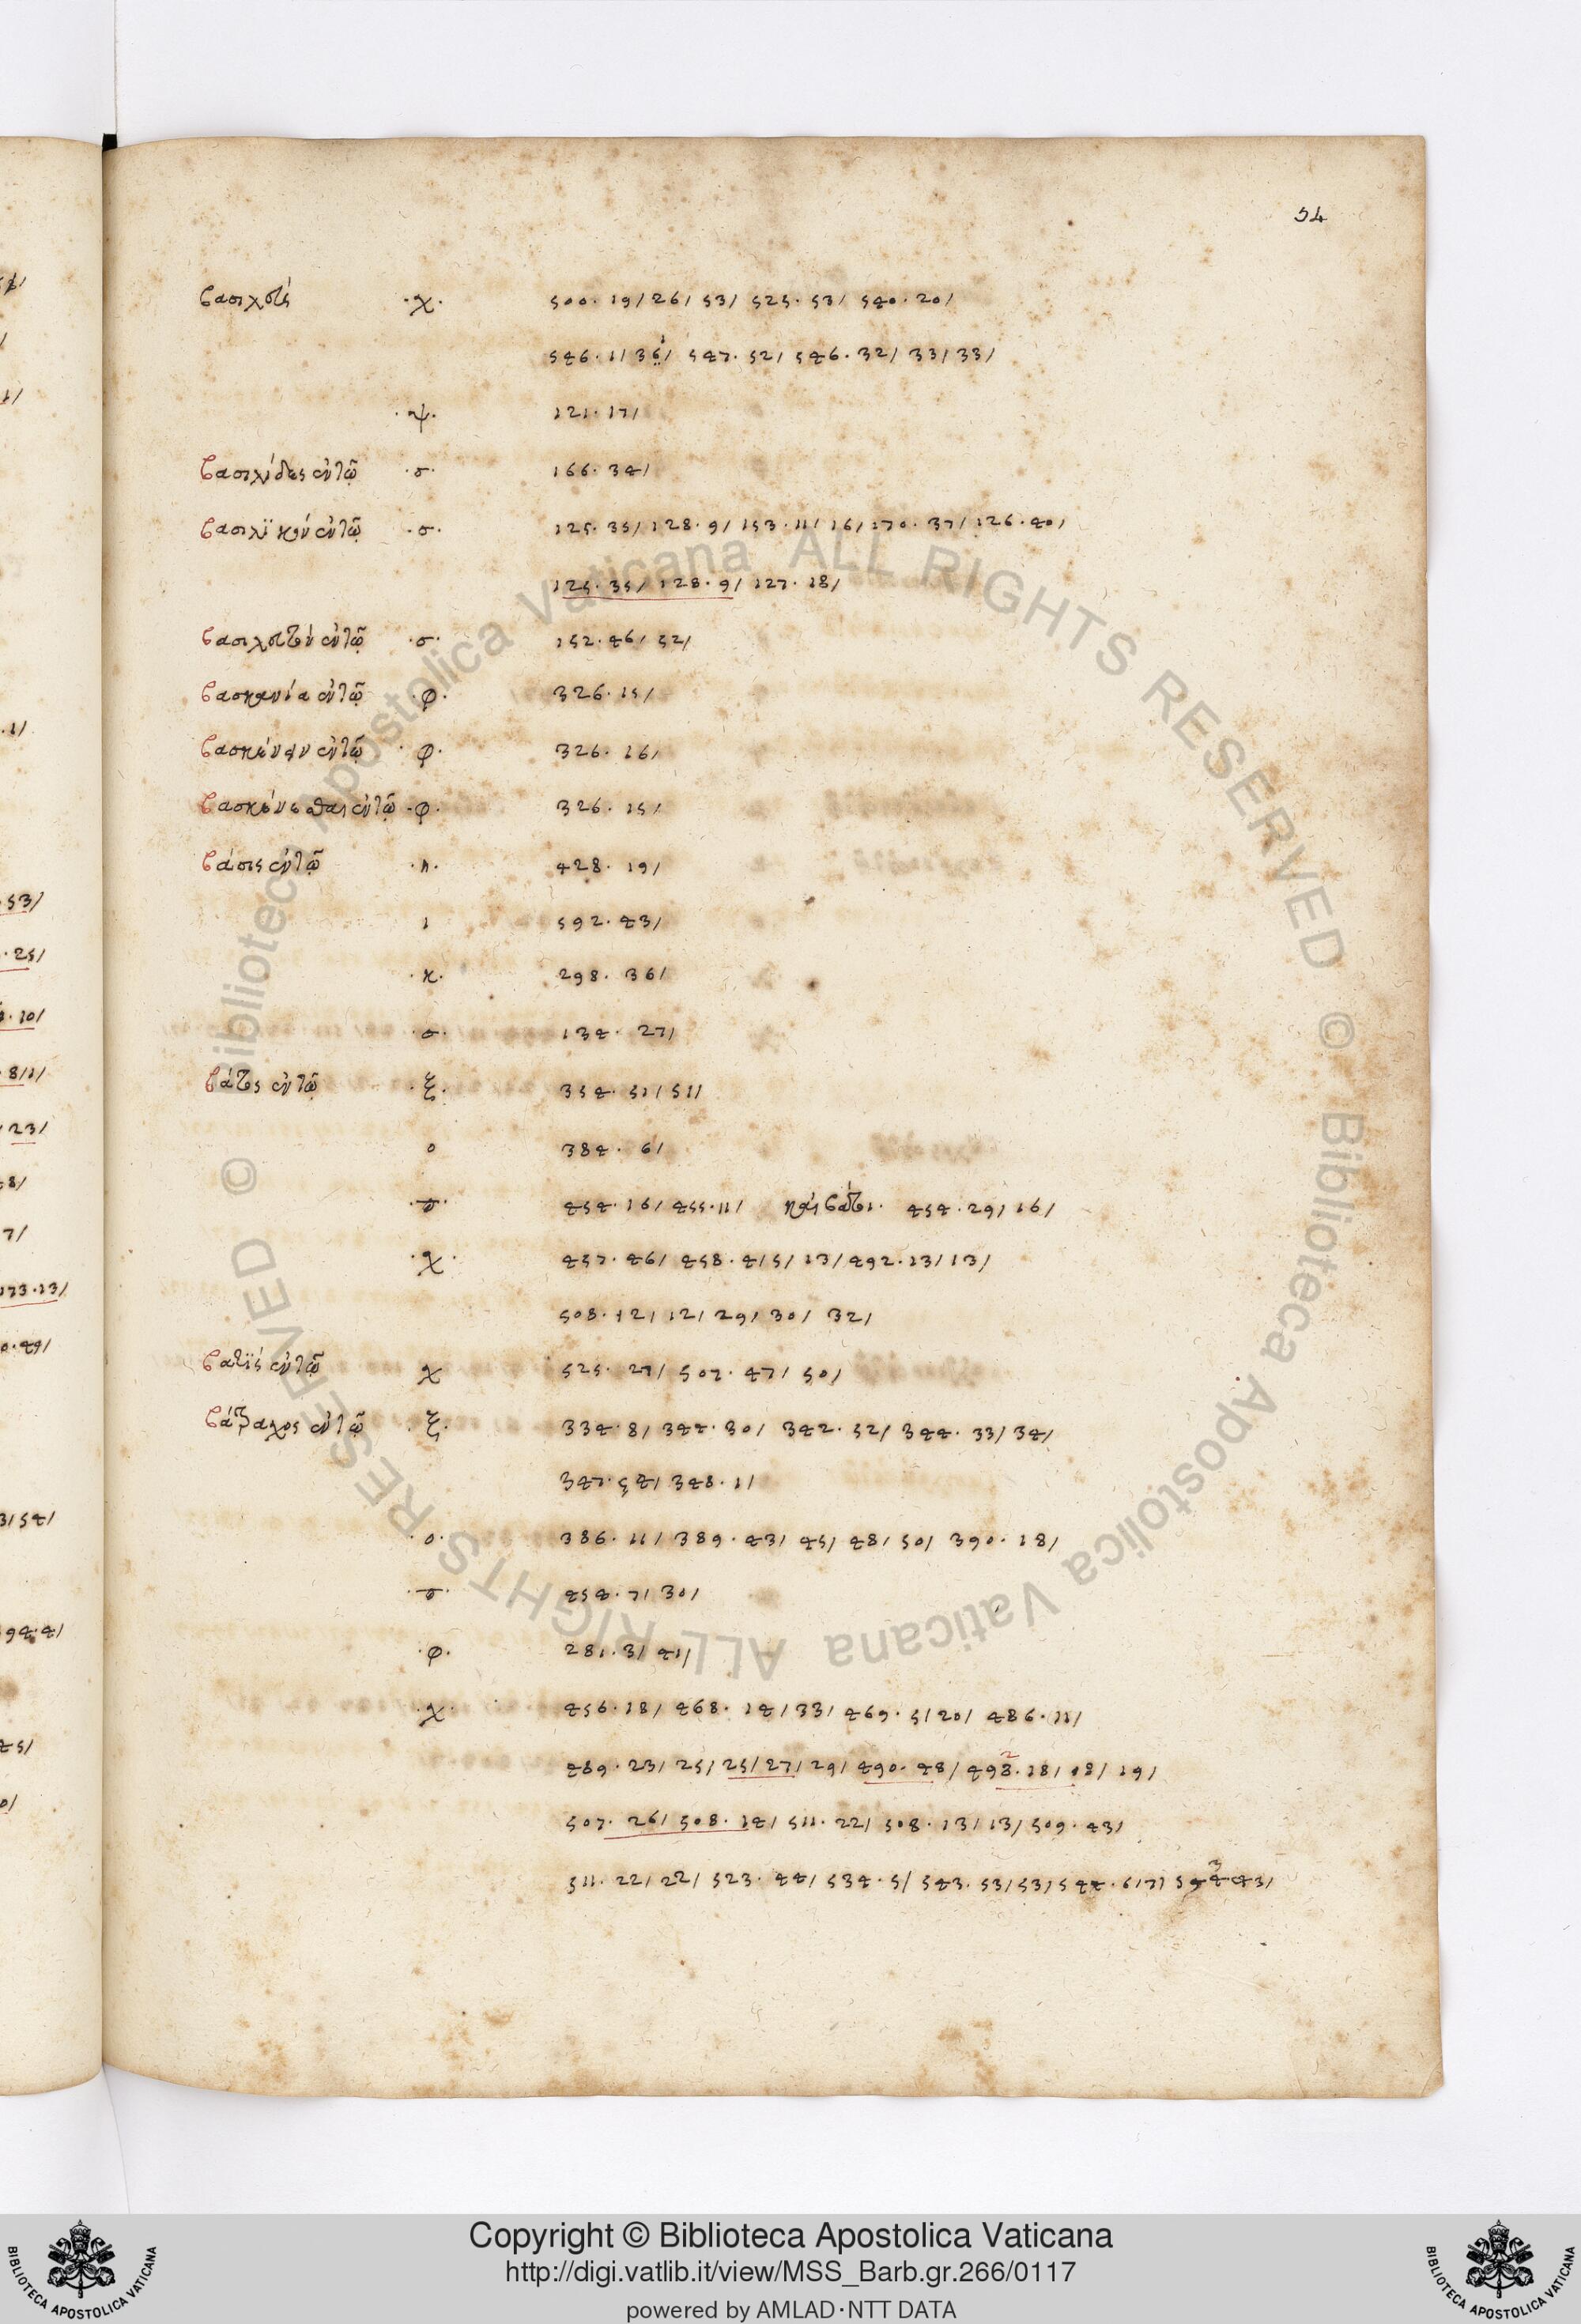 54
βασιλεὺς ·χ· 500. 19/ 26/ 53/ 525. 53/ 540. 20/
546. 1/ 36/ 547. 52/ 546. 32/ 33/ 33/
·ψ· 121. 17/
βασιλίδος ἐν τῷ ·σ· 166. 34/
βασιλϊκὸν ἐν τῷ ·σ· 125. 35/ 128. 9/ 153. 11/ 16/ 170. 37/ 126. 40/
125. 35/ 128. 9/ 127. 18/
ἐν τῷ ·σ· 152. 46/ 52/
βασκανία ἐν τῷ ·φ· 326. 15/
ἐν τῷ ·φ· 326. 16/
ἐν τῷ ·φ· 326. 15/
βάσις ἐν τῷ ·η· 428. 19/
ι 592. 43/
·κ· 298. 36/
·σ· 134. 27/
βάτος ἐν τῷ ·ξ· 354. 51/ 51/
ο 384. 6/
454. 16/ 455. 11/ 454. 29/ 16/
·χ· 457. 46/ 458. 4/ 5/ 13/ 492. 13/ 13/
508. 12/ 12/ 29/ 30/ 32/
ἐν τῷ χ 525. 27/ 507. 47/ 50/
βάτραχος ἐν τῷ ·ξ· 334. 8/ 344. 30/ 342. 52/ 344. 33/ 34/
347. 54/ 348. 1/
·ο· 386. 11/ 389. 43/ 45/ 48/ 50/ 390. 18/
454. 7/ 30/
·φ· 281. 3/ 41/
·χ· 456. 18/ 468. 14/ 33/ 469. 5/ 20/ 486. 11/
489. 23/ 25/ 25/ 27/ 29/ 490. 48/ 498. 18/ 18/ 19/
507. 26/ 508. 14/ 511. 22/ 508. 13/ 13/ 509. 43/
511. 22/ 22/ 523. 44/ 534. 5/ 543. 53/ 53/ 544. 6/ 7/
© Biblioteca Apostolica Vaticana ALL RIGHTS RESERVED
© Biblioteca Apostolica Vaticana ALL RIGHTS RESERVED
Copyright © Biblioteca Apostolica Vaticana
http://digi.vatlib.it/view/MSS_Barb.gr.266/0117
powered by AMLAD·NTT DATA
BIBLIOTECA APOSTOLICA VATICANA
BIBLIOTECA APOSTOLICA VATICANA